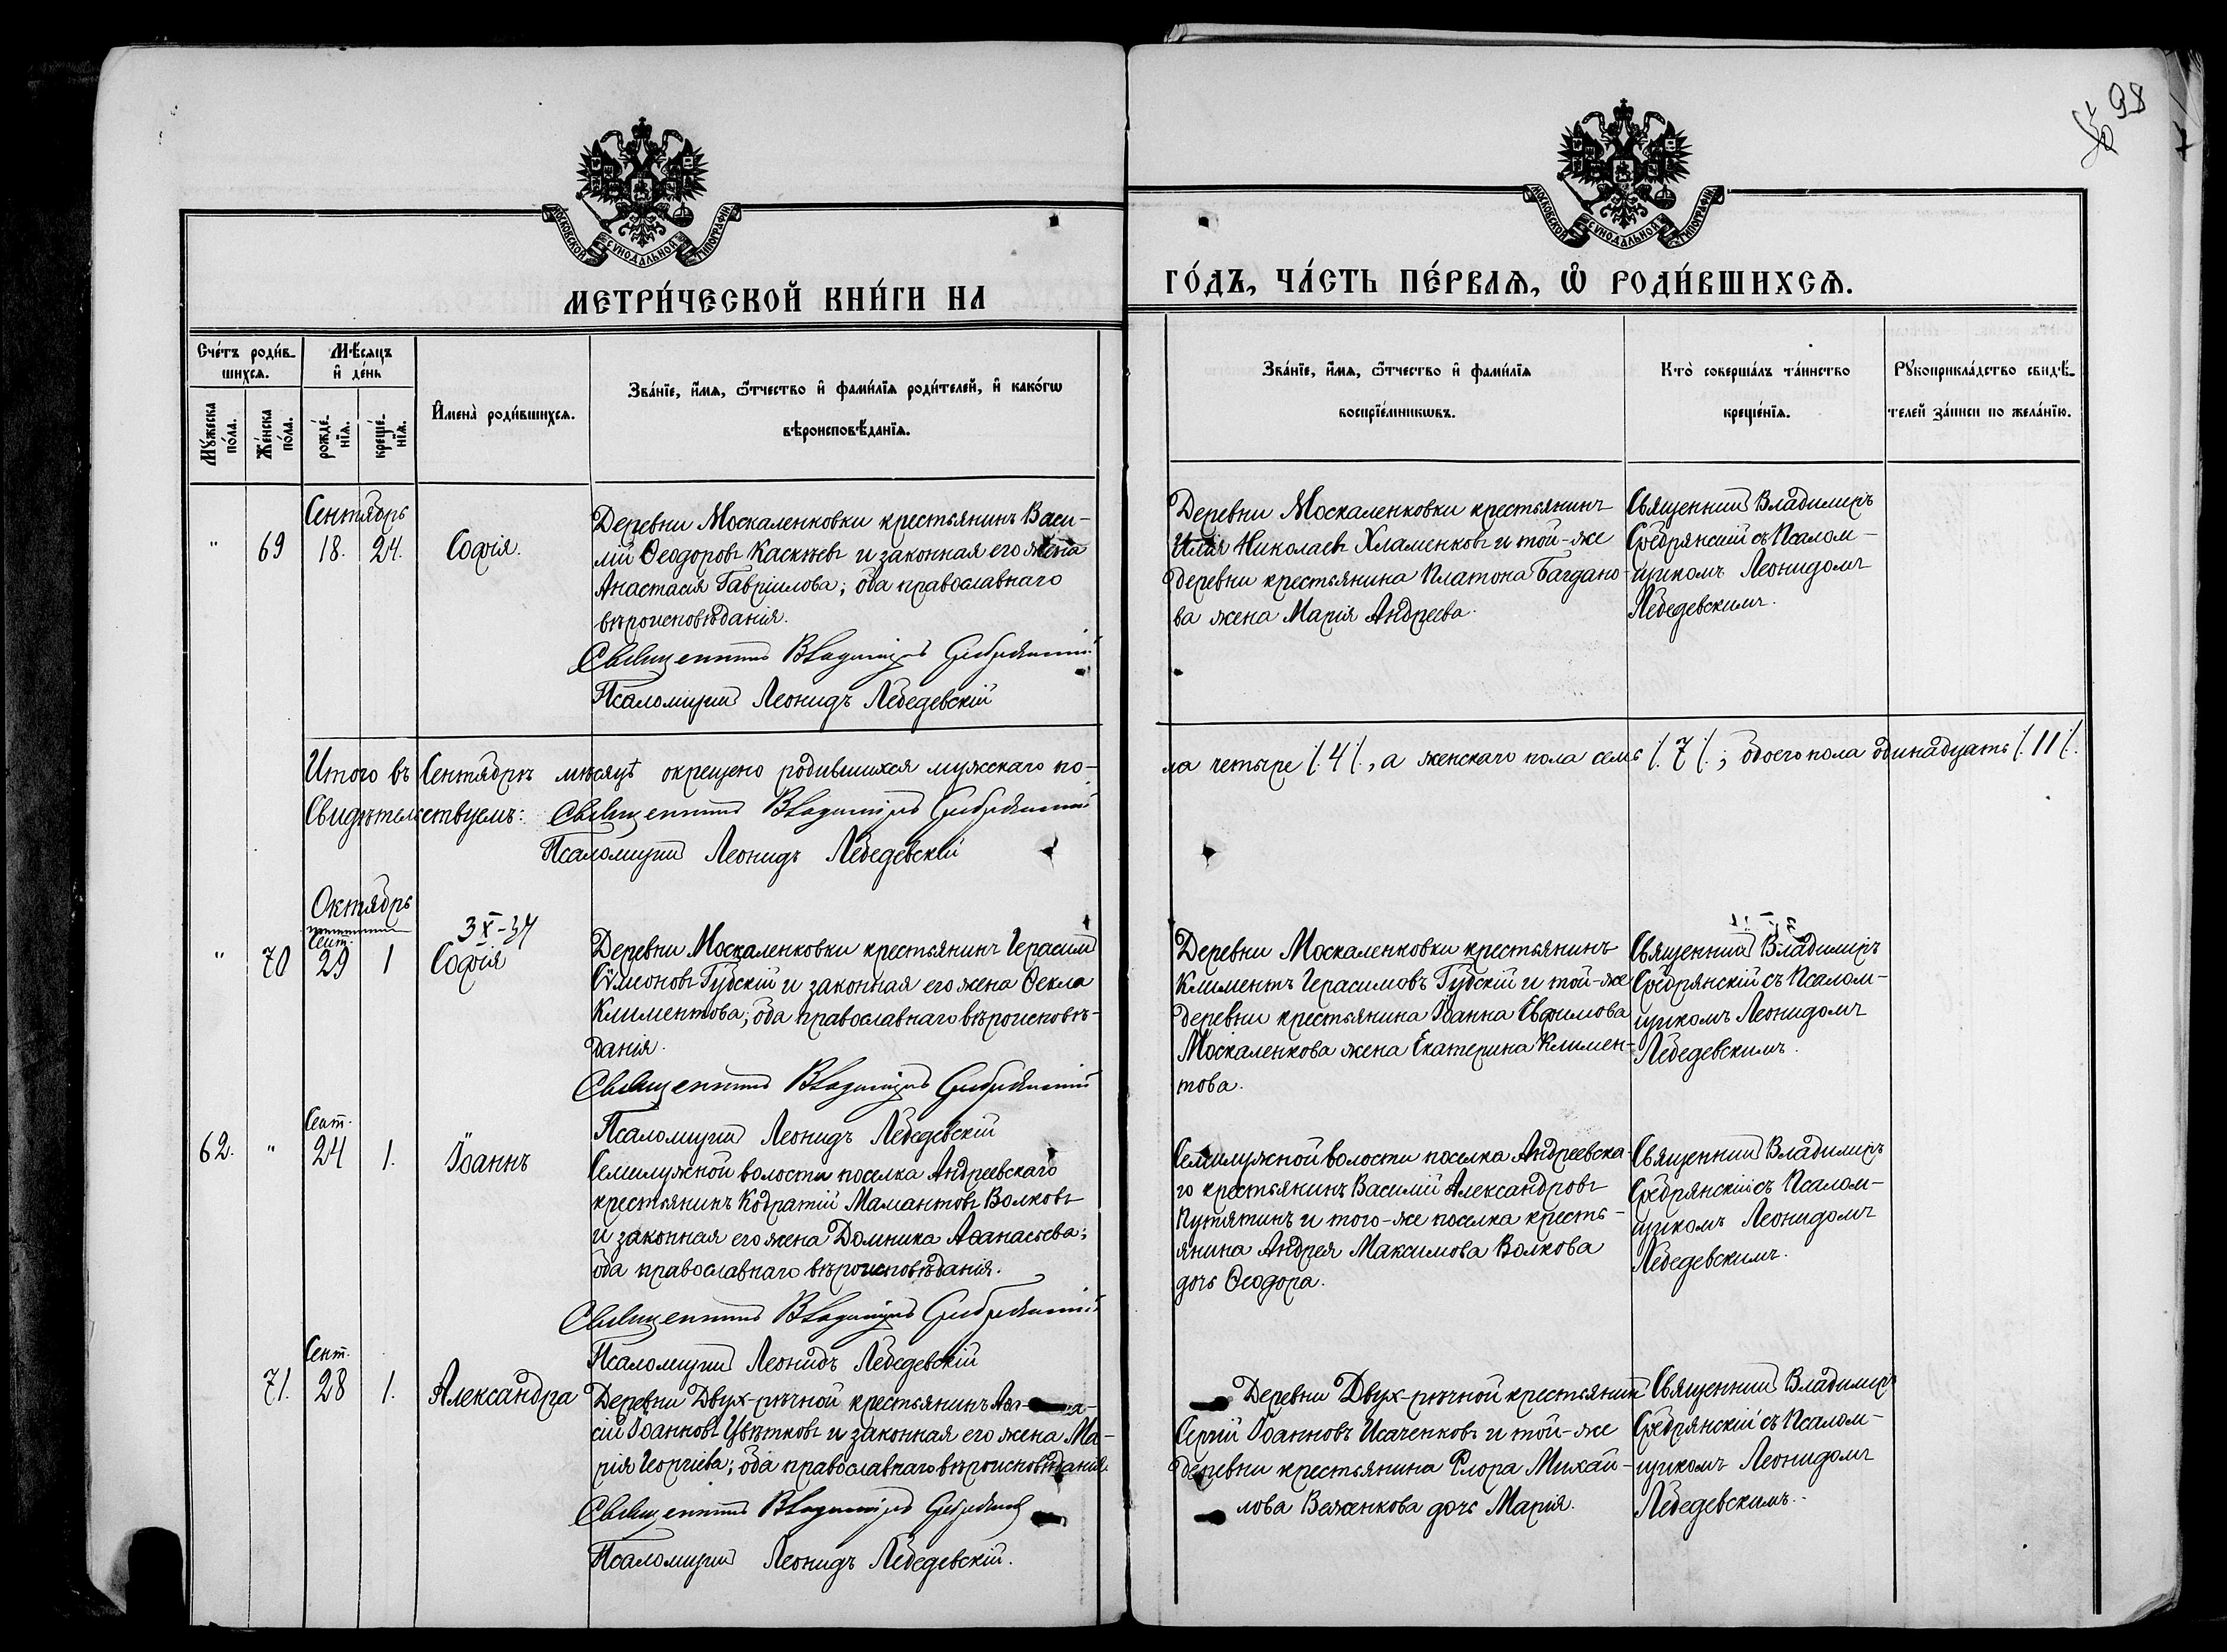 98
МОСКОВСКОЙ СѴНОДАЛЬНОЙ ТИПОГРАФІИ.
МОСКОВСКОЙ СѴНОДАЛЬНОЙ ТИПОГРАФІИ.
МЕТРИ́ЧЕСКОЙ КНИ́ГИ НА
ГО́ДЪ, ЧА́СТЬ ПЕ́РВАѦ, Ѿ РОДИ́ВШИХСѦ.
Сче́тъ роди́в-
шихсѧ.
Мѣ́сѧцъ
и҆ де́нь
Мꙋ́жеска
по́ла.
Же́нска
по́ла.
рожде́-
нїѧ.
креще́-
нїѧ.
И҆мена̀ роди́вшихсѧ.
Зва́нїе, и҆́мѧ, ѻ҆́тчество и҆ фами́лїѧ роди́телей, и҆ како́гѡ
вѣроисповѣ́данїѧ.
Зва́нїе, и҆́мѧ, ѻ҆́тчество и҆ фами́лїѧ
воспрїе́мникѡвъ.
Кто̀ соверша́лъ та́инство
креще́нїѧ.
Рꙋкоприкла́дство свидѣ́-
телей за́писи по жела́нїю.
Сентябрь
" 69 18. 24. Софія.
Деревни Москаленковки крестьянинъ Васи-
лій Ѳеодоровъ и законная его жена
Анастасія Гавріилова; оба православнаго
вѣроисповѣданія.
Священникъ Владиміръ Сребрянскій
Псаломщикъ Леонидъ Лебедевскій
Деревни Москаленковки крестьянинъ
Илія Николаевъ Хламенковъ и той-же
деревни крестьянина Платона Багдано-
ва жена Марія Андреева.
Священникъ Владиміръ
Сребрянскій съ Псалом-
щикомъ Леонидомъ
Лебедевскимъ.
Итого въ Сентябрѣ мѣсяцѣ окрещено родившихся мужскаго по-
ла четыре /.4/., а женскаго пола семь /.7/.; обоего пола одинадцать /.11/.
Свидѣтельствуемъ: Священникъ Владиміръ Сребрянскій
Псаломщикъ Леонидъ Лебедевскій
Октябрь
Сент.
3 X-34
" 70 29 1 Софія
Деревни Москаленковки крестьянинъ Герасимъ
Сѵмеоновъ Губскій и законная его жена Ѳекла
Климентова; оба православнаго вѣроисповѣ-
данія.
Священникъ Владиміръ Сребрянскій
Псаломщикъ Леонидъ Лебедевскій
Деревни Москаленковки крестьянинъ
Климентъ Герасимовъ Губскій и той-же
деревни крестьянина Іоанна Евфимова
Москаленкова жена Екатерина Климен-
това.
Священникъ Владиміръ
Сребрянскій съ Псалом-
щикомъ Леонидомъ
Лебедевскимъ.
Сент.
62. " 24 1. Іоаннъ
Семилужной волости поселка Андреевскаго
крестьянинъ Кодратій Мамантовъ Волковъ
и законная его жена Домника Аѳанасьева;
оба православнаго вѣроисповѣданія.
Священникъ Владиміръ Сребрянскій
Псаломщикъ Леонидъ Лебедевскій
Семилужной волости поселка Андреевска-
го крестьянинъ Василій Александровъ
Путятинъ и того-же поселка кресть-
янина Андрея Максимова Волкова
дочь Ѳеодора.
Священникъ Владиміръ
Сребрянскій съ Псалом-
щикомъ Леонидомъ
Лебедевскимъ.
Сент.
71. 28 1. Александра
Деревни Двух-рѣчной крестьянинъ
сій Іоанновъ Цвѣтковъ и законная его жена Ма-
рія Георгіева; оба православнаго вѣроисповѣданія.
Священникъ Владиміръ Сребрянскій
Псаломщикъ Леонидъ Лебедевскій.
Деревни Двух-рѣчной крестьянинъ
Сергій Іоанновъ Исаченковъ и той-же
деревни крестьянина Флора Михай-
лова Важенкова дочь Марія.
Священникъ Владиміръ
Сребрянскій съ Псалом-
щикомъ Леонидомъ
Лебедевскимъ.